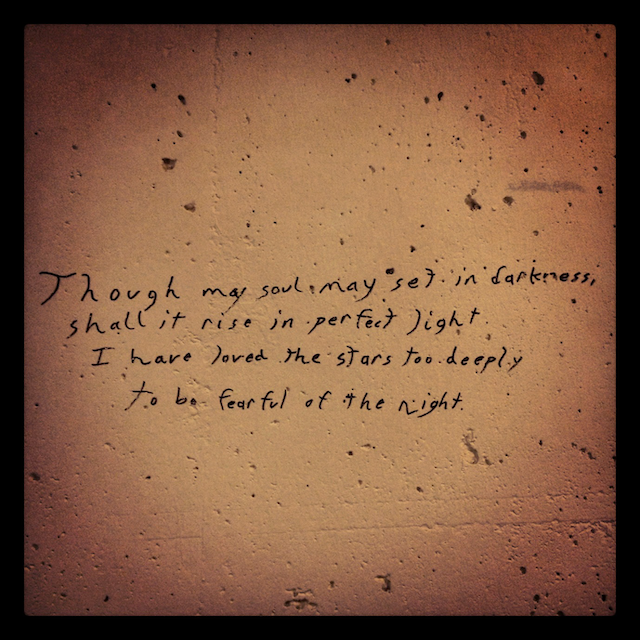 Though my soul may set in darkness,
shall it rise in perfect light.
I have loved the stars too deeply
to be fearful of the night.